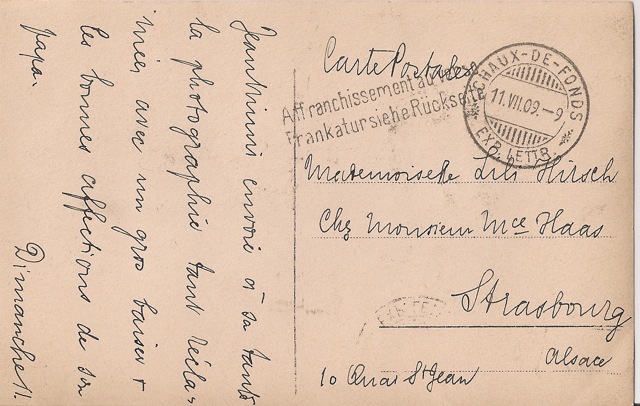 Jeanninni envoie à sa tante
la photographie tant récla-
mée, avec un gros baiser &
les bonnes affections de son
papa.
Dimanche 11.
Carte Postale
Affranchissement au verso
Frankatur siehe Rückseite
CHAUX-DE-FONDS
11.VII.09.-9
EXP. LETTR.
Mademoiselle Lili Hirsch
Chez Monsieur Mce Haas
Strasbourg
Alsace
10 Quai St Jean